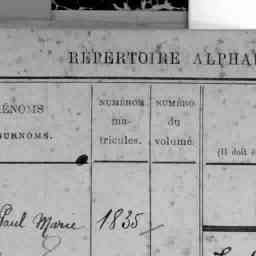 RÉPERTOIRE ALPHA
ÉNOMS
SURNOMS.
NUMÉROS
ma-
tricules.
NUMÉRO
du
volumé.
(Il doit ê
Paul Marie
1835